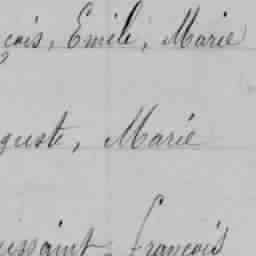 çois, Emile, Marie
guste, Marie
ussaint, François